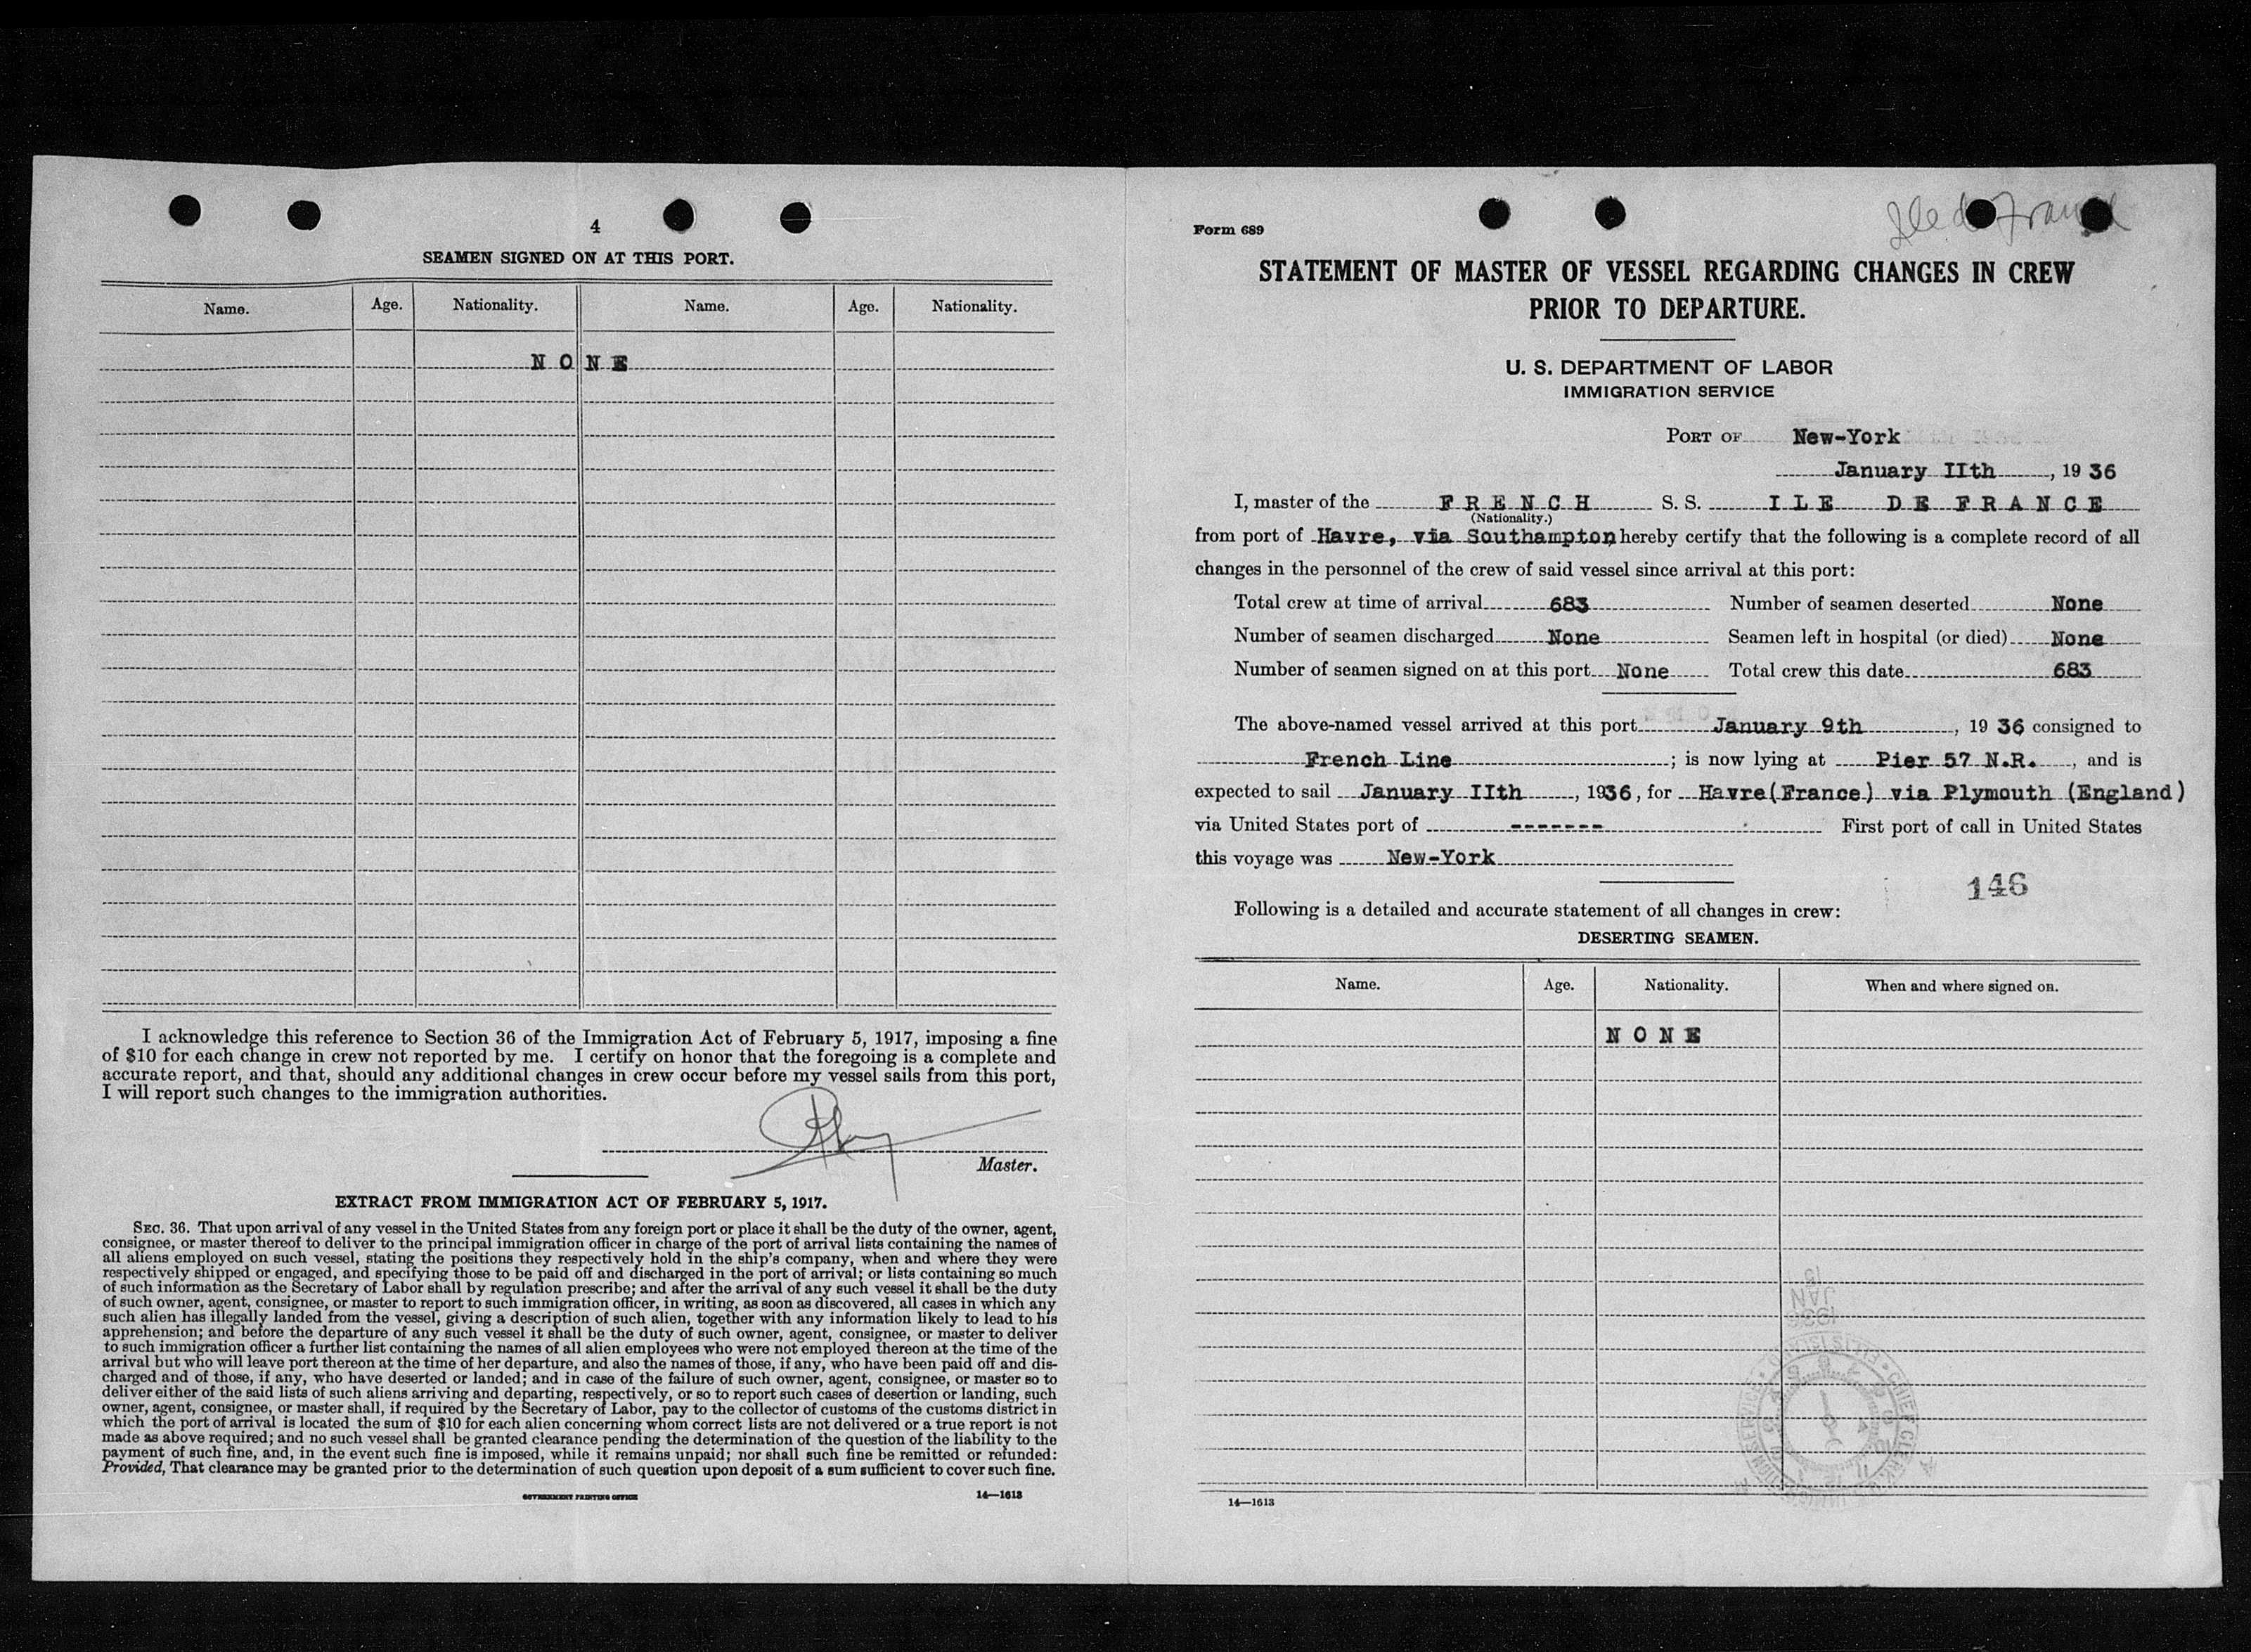 4
SEAMEN SIGNED ON AT THIS PORT.
Name. Age. Nationality. Name. Age. Nationality.
N O N E
I acknowledge this reference to Section 36 of the Immigration Act of February 5, 1917, imposing a fine
of $10 for each change in crew not reported by me. I certify on honor that the foregoing is a complete and
accurate report, and that, should any additional changes in crew occur before my vessel sails from this port,
I will report such changes to the immigration authorities.
Master.
EXTRACT FROM IMMIGRATION ACT OF FEBRUARY 5, 1917.
SEC. 36. That upon arrival of any vessel in the United States from any foreign port or place it shall be the duty of the owner, agent,
consignee, or master thereof to deliver to the principal immigration officer in charge of the port of arrival lists containing the names of
all aliens employed on such vessel, stating the positions they respectively hold in the ship's company, when and where they were
respectively shipped or engaged, and specifying those to be paid off and discharged in the port of arrival; or lists containing so much
of such information as the Secretary of Labor shall by regulation prescribe; and after the arrival of any such vessel it shall be the duty
of such owner, agent, consignee, or master to report to such immigration officer, in writing, as soon as discovered, all cases in which any
such alien has illegally landed from the vessel, giving a description of such alien, together with any information likely to lead to his
apprehension; and before the departure of any such vessel it shall be the duty of such owner, agent, consignee, or master to deliver
to such immigration officer a further list containing the names of all alien employees who were not employed thereon at the time of the
arrival but who will leave port thereon at the time of her departure, and also the names of those, if any, who have been paid off and dis-
charged and of those, if any, who have deserted or landed; and in case of the failure of such owner, agent, consignee, or master so to
deliver either of the said lists of such aliens arriving and departing, respectively, or so to report such cases of desertion or landing, such
owner, agent, consignee, or master shall, if required by the Secretary of Labor, pay to the collector of customs of the customs district in
which the port of arrival is located the sum of $10 for each alien concerning whom correct lists are not delivered or a true report is not
made as above required; and no such vessel shall be granted clearance pending the determination of the question of the liability to the
payment of such fine, and, in the event such fine is imposed, while it remains unpaid; nor shall such fine be remitted or refunded:
Provided, That clearance may be granted prior to the determination of such question upon deposit of a sum sufficient to cover such fine.
GOVERNMENT PRINTING OFFICE 14—1613
Form 689
Ile de France
STATEMENT OF MASTER OF VESSEL REGARDING CHANGES IN CREW
PRIOR TO DEPARTURE.
U. S. DEPARTMENT OF LABOR
IMMIGRATION SERVICE
PORT OF New-York
January IIth, 19 36
I, master of the F R E N C H S. S. I L E D E F R A N C E
(Nationality.)
from port of Havre, via Southampton, hereby certify that the following is a complete record of all
changes in the personnel of the crew of said vessel since arrival at this port:
Total crew at time of arrival 683 Number of seamen deserted None
Number of seamen discharged None Seamen left in hospital (or died) None
Number of seamen signed on at this port None Total crew this date 683
The above-named vessel arrived at this port January 9th, 19 36 consigned to
French Line; is now lying at Pier 57 N.R., and is
expected to sail January IIth, 1936, for Havre(France) via Plymouth (England)
via United States port of ------- First port of call in United States
this voyage was New-York
146
Following is a detailed and accurate statement of all changes in crew:
DESERTING SEAMEN.
Name. Age. Nationality. When and where signed on.
N O N E
14—1613